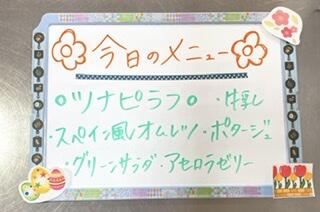 今日のメニュー
○ツナピラフ○ ・牛乳
・スペイン風オムレツ・ポタージュ
・グリーンサラダ・アセロラゼリー